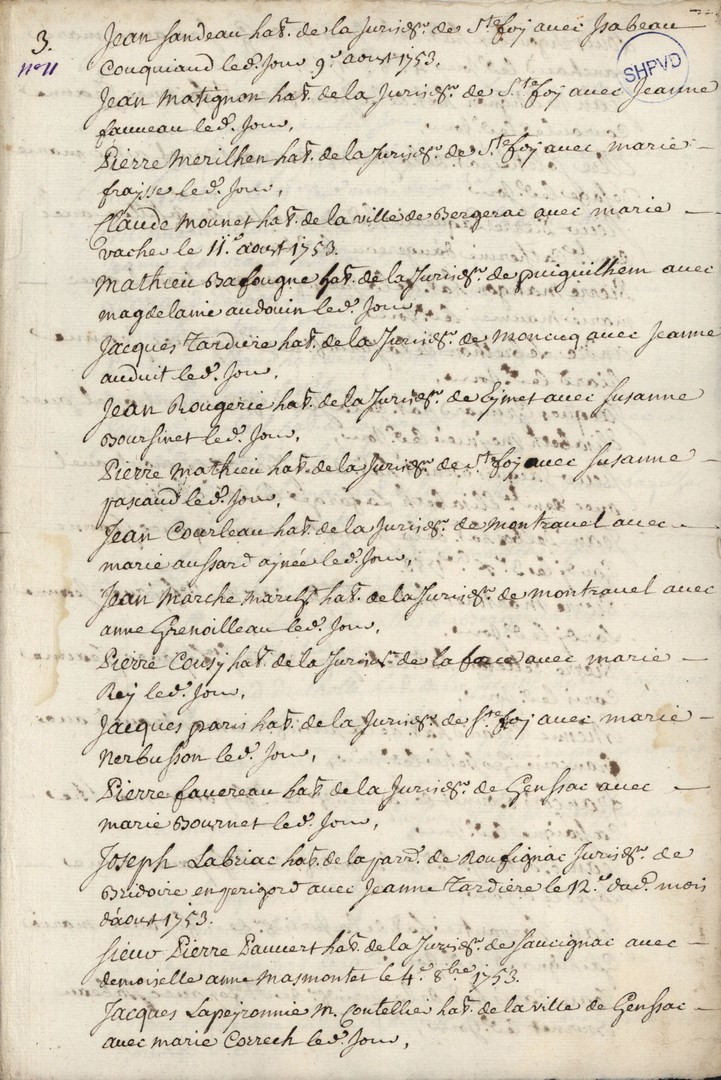 3.
n° 11
SHPVD
Jean Sandeau hat. de la Jurisdn. de Ste foy avec Isabeau
Couquiaud led. Jour 9e. aoust 1753.
Jean Matignon hat. de la Jurisdn. de Ste foy avec Jeanne
fauveau led. Jour,
Pierre Merilhen hat. de la Jurisdn. de Ste foy avec marie
fraysse led. Jour,
Claude Mounet hat. de la ville de Bergerac avec marie
vacher le 11e. aoust 1753.
Mathieu Bafougne hat. de la Jurisdn. de puiguilhem avec
magdelaine audouin led. Jour,
Jacques Tardiere hat. de la Jurisdn. de Moncuq avec Jeanne
auduit led. Jour,
Jean Rougerie hat. de la Jurisdn. de Eymet avec Susanne
Boursinet led. Jour,
Pierre Mathieu hat. de la Jurisdn. de Ste foy avec Susanne
pascaud led. Jour,
Jean Courleau hat. de la Jurisdn. de Montravel avec
marie aussard aynée led. Jour,
Jean Marche hat. de la Jurisdn. de montravel avec
anne Grenoilleau led. Jour,
Pierre Cousy hat. de la Jurisdn. de la force avec marie
Rey led. Jour,
Jacques paris hat. de la Jurisdn. de Ste foy avec marie
Nerbusson led. Jour,
Pierre favereau hat. de la Jurisdn. de Genssac avec
marie Bournet led. Jour,
Joseph Labriac hat. de la parr. de Roufignac Jurisdn. de
Bridoire en perigord avec Jeanne Tardiere le 12e. dud. mois
d'aoust 1753.
Sieur Pierre Pauvert hat. de la Jurisdn. de Saucignac avec
demoiselle anne Masmontet le 4e. 8bre 1753.
Jacques Lapeyronnie M. Coutellier hat. de la ville de Genssac
avec marie Correch led. Jour,